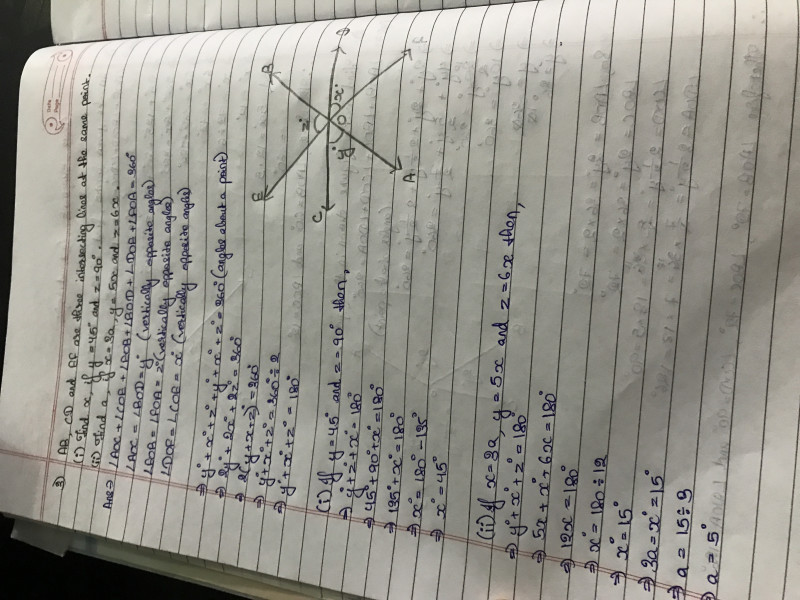 Date
Page
3) AB, CD and EF are three intersecting lines at the same point.
(i) Find x, if y = 45° and z = 90°.
(ii) Find a, if x = 3a, y = 5x and z = 6x.
Ans→ ∠AOC + ∠COE + ∠EOB + ∠BOD + ∠DOF + ∠FOA = 360°
∠AOC = ∠BOD = y° (vertically opposite angles)
∠EOB = ∠FOA = z° (vertically opposite angles)
∠DOF = ∠COE = x° (vertically opposite angles)
⇒ y° + x° + z° + y° + x° + z° = 360° (angles about a point)
⇒ 2y° + 2x° + 2z° = 360°
⇒ 2(y + x + z)° = 360°
⇒ y° + x° + z° = 360° ÷ 2
⇒ y° + x° + z° = 180°
E
B
D
z°
x°
O
C
y°
A
F
(i) If y = 45° and z = 90° then,
⇒ y° + z° + x° = 180°
⇒ 45° + 90° + x° = 180°
⇒ 135° + x° = 180°
⇒ x° = 180° - 135°
⇒ x° = 45°
(ii) If x = 3a, y = 5x and z = 6x then,
⇒ y° + x° + z° = 180°
⇒ 5x + x° + 6x = 180°
⇒ 12x° = 180°
⇒ x° = 180 ÷ 12
⇒ x° = 15°
⇒ 3a = x° = 15°
⇒ a = 15 ÷ 3
⇒ a = 5°